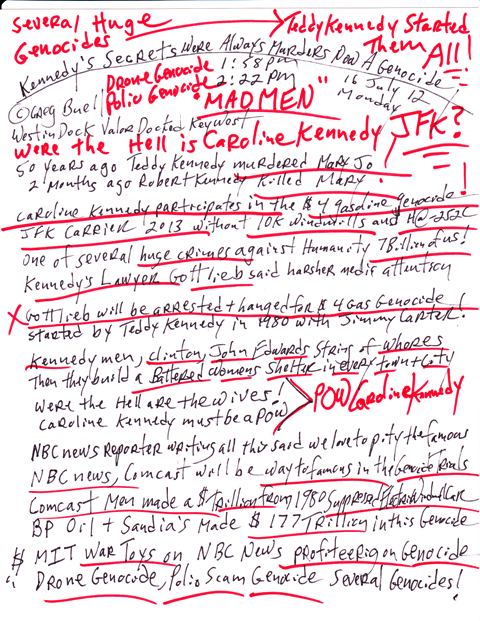 Several Huge Genocides → Teddy Kennedy Started Them All!
Kennedy's Secrets Were Always Murders Now A Genocide
Drone Genocide 1:58 pm
Polio Genocide 2:22 pm
16 July 12
Monday
© Greg Buell
"MAD MEN"
Westin Dock Valor Docked Key West
Were the Hell is Caroline Kennedy JFK?
50 years ago Teddy Kennedy murdered Mary Jo
2 Months ago Robert Kennedy Killed Mary!
Caroline Kennedy participates in the $4 gasoline genocide!
JFK Carrier 2013 without 10K windmills and H@-252C
One of several huge crimes against Humanity 7Billion of us!
Kennedy's Lawyer Gottlieb said harsher media attention
X Gottlieb will be arrested + hanged for $4 Gas Genocide!
started by Teddy Kennedy in 1980 with Jimmy Carter!
Kennedy men, Clinton, John Edwards String of Whores
Then they build a Battered Womens Shelter in every town + City
Were the Hell are the wives.
Caroline Kennedy must be a POW
POW Caroline Kennedy
NBC news Reporter writing all this said we love to pity the famous
NBC news, Comcast will be way to famous in the Genocide Trials
Comcast Men made a $Trillion from 1980 Suppressed Electric Windmill Car
BP Oil + Saudia's Made $177 Trillion in this Genocide
$ MIT War Toys on NBC News profiteering on Genocide
" Drone Genocide, Polio Scam Genocide Several Genocides!